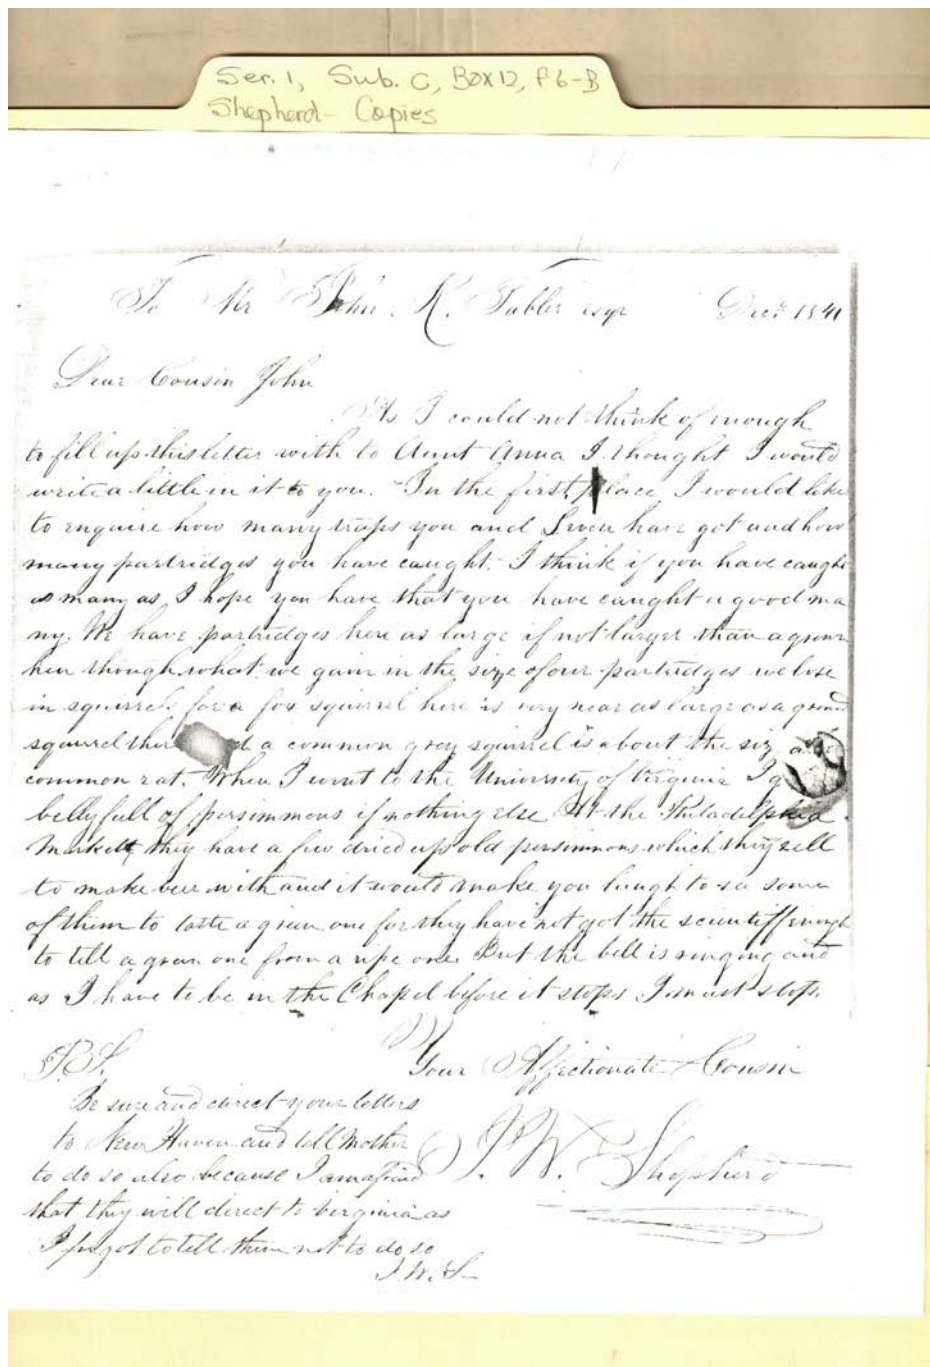 Ser. 1, Sub. C, Box 12, F6-B
Shepherd - Copies
To Mr John. K. Tabler esqr Decr 1841
Dear Cousin John
As I could not think of enough
to fill up this letter with to Aunt Anna I thought I would
write a little in it to you. In the first place I would like
to enquire how many traps you and have got and how
many partridges you have caught. I think if you have caught
as many as I hope you have that you have caught a good ma
ny. We have partridges here as large if not larger than a grown
hen though what we gain in the size of our partridges we lose
in squirrels for a fox squirrel here is very near as large as a ground
squirrel a common grey squirrel is about the size
common rat. When I went to the University of Virginia I
belly full of persimmons if nothing else. At the Philadelphia
Markett they have a few dried up old persimmons which they sell
to make beer with and it would make you laugh to see some
of them to taste a green one for they have not got the enough
to tell a green one from a ripe one. But the bell is ringing and
as I have to be in the Chapel before it stops I must stop.
Your Affectionate Cousin
J. W. Shepherd
P.S.
Be sure and direct your letters
to New Haven and tell Mother
to do so also because I am afraid
that they will direct to Virginia as
I forgot to tell them not to do so
J. W. S